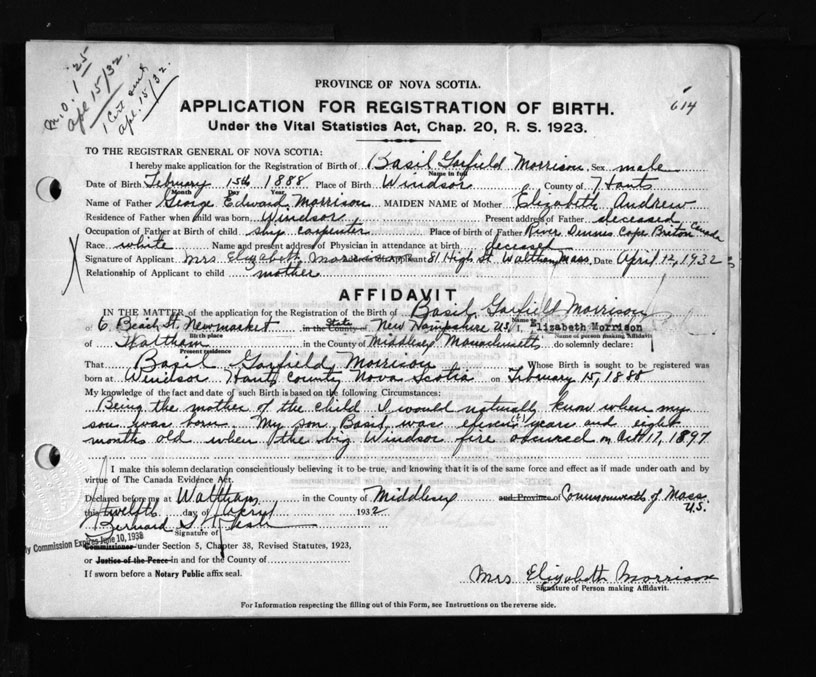 m.O. 1.25
Apl 15/32.
1 Cert sent
Apl. 15/32.
614
PROVINCE OF NOVA SCOTIA.
APPLICATION FOR REGISTRATION OF BIRTH.
Under the Vital Statistics Act, Chap. 20, R. S. 1923.
TO THE REGISTRAR GENERAL OF NOVA SCOTIA:
I hereby make application for the Registration of Birth of Basil Garfield Morrison, Sex male
Name in full
Date of Birth February 15th 1888 Place of Birth Windsor County of Hants
Month Day Year
Name of Father George Edward Morrison MAIDEN NAME of Mother Elizabeth Andrew
Residence of Father when child was born, Windsor Present address of Father deceased
Occupation of Father at Birth of child ship carpenter Place of birth of Father River Dennis Cape Briton Canada
Race white Name and present address of Physician in attendance at birth deceased
Signature of Applicant Mrs Elizabeth Morrison Applicant 81 High St Waltham Mass, Date April 12, 1932
Relationship of Applicant to child mother
AFFIDAVIT
IN THE MATTER of the application for the Registration of the Birth of Basil Garfield Morrison
Name in
of 6 Beach St. Newmarket in the County State of New Hampshire U.S. I, Elizabeth Morrison
Birth place Name of person making Affidavit
of Waltham in the County of Middlesex Massachusetts do solemnly declare:
Present residence
That Basil Garfield Morrison Whose Birth is sought to be registered was
born at Windsor Hants County Nova Scotia on February 15, 1888
My knowledge of the fact and date of such Birth is based on the following Circumstances:
Being the mother of the child I would naturally know when my
son was born. My son Basil was years and eight
months old when the big Windsor fire occured on Oct 17, 1897
I make this solemn declaration conscientiously believing it to be true, and knowing that it is of the same force and effect as if made under oath and by
virtue of The Canada Evidence Act.
Declared before me at Waltham in the County of Middlesex and Province of Commonwealth of Mass.
U.S.
this twelfth day of April 1932
Bernard S.
Signature of
y Commission Expires June 10, 1938
Commissioner under Section 5, Chapter 38, Revised Statutes, 1923,
or Justice of the Peace in and for the County of
If sworn before a Notary Public affix seal.
Mrs Elizabeth Morrison
Signature of Person making Affidavit.
For Information respecting the filling out of this Form, see Instructions on the reverse side.